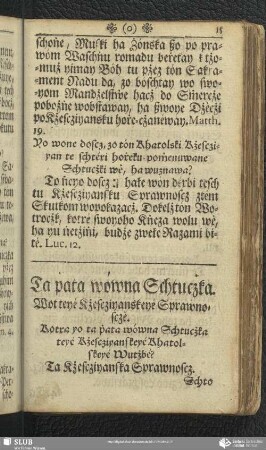 15
schońe, Muſki ha Zonska ßo po pra-
wom Waschńu romadu beretay a tżo-
muż yimay Böh tu pżez tón Sak-
rament Nadu da, zo boschtay wo ßwo-
yom Mandżelſtwe hacż do Smercże
pobożne wobſtawan, ha ßwoye Dżecżi
po Kżeſcziyanſku hoŕe-cżaneway. Matth.
19.
Yo wone doſcz, zo tón Khatolski Kżeſczi-
yan te ſchtéri hoŕeku-pomenuwane
Schtucżki wé, ha wuznawa?
To ńeyo doſcz; hale won dérbi teſch
tu Kżeſcziyanſku Sprawnoſcz ztem
Skutkom wopokazacż. Dokelż ton Wo-
trocżk, kotre ſworoho Kńeza wolu wé,
ha yu ńecżińi, budże zwele Razami bi-
té. Luc. 12.
Ta pata wówna Schtucżka.
Wot teyé Kżeſcziyanſkeye Sprawno-
ſczé.
Kotra yo ta pata wówna Schtucżka
teyé Kżeſcziyanſkeyé Khatol-
ſkeyé Wutżbé?
Ta Kżeſcziyanſka Sprawnoſcz.
Schto
SLUB
Wir führen Wissen.